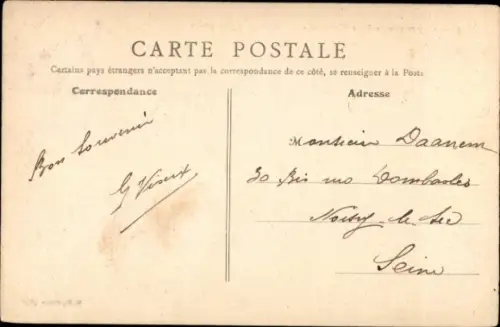 CARTE POSTALE
Certains pays étrangers n'acceptant pas la correspondance de ce côté, se renseigner à la Poste
Correspondance
Adresse
Bon souvenir
G
Monsieur Daanem
30 Bis rue Dombasles
Noisy-le-Sec
Seine